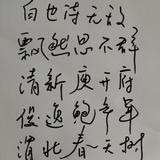 白也诗无敌
飘然思不群
清新庾开府
俊逸鲍参军
渭北春天树